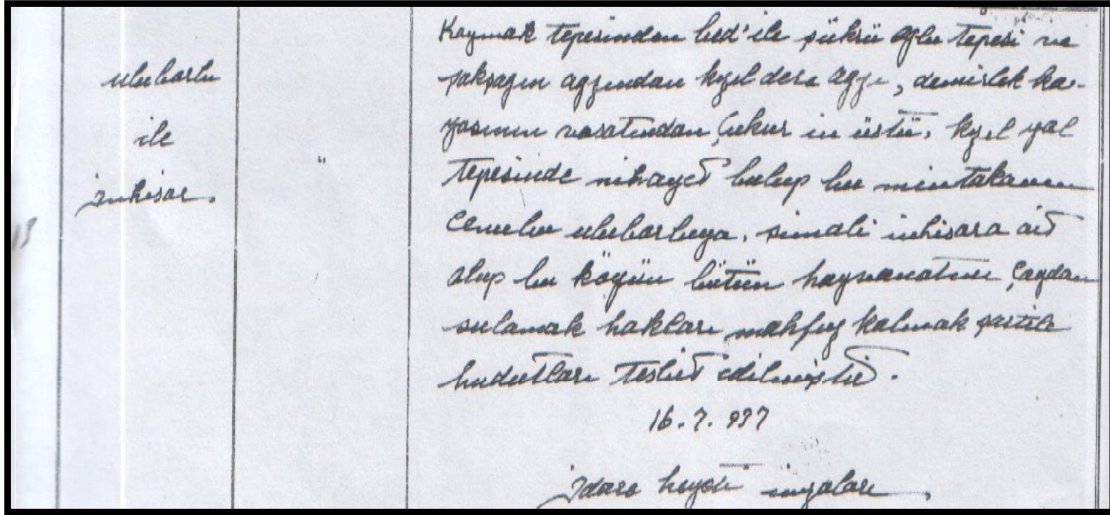 Kaymak tepesinden bed'ile şükrü oğlu tepesi ve
ulubarlu
şakşağın ağzından kızıl dere ağzı, demirlek ka-
yasının vasatından Çukur in üstü. kızıl yal
ile
"
tepesinde nihayet bulup bu mıntakanın
inhisar.
cenubu ulubarluya. şimali inhisara aid
13
olup bu köyün bütün hayvanatını Çaydan
sulamak hakları mahfuz kalmak şartile
hudutları tesbit edilmiştir.
16.7.937
idare heyeti imzaları